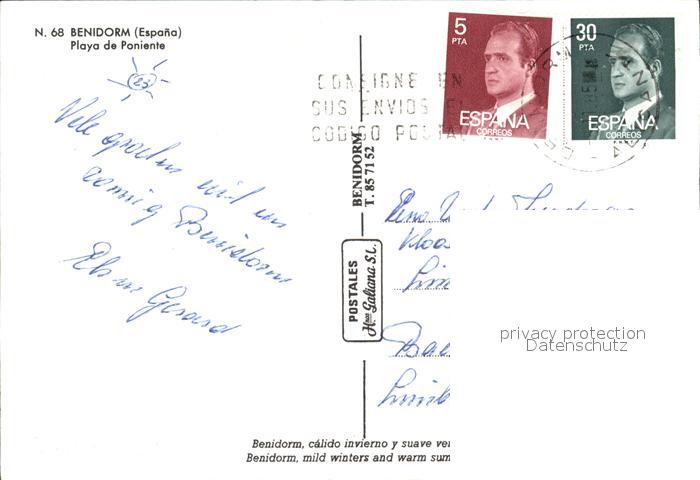 N. 68 BENIDORM (España)
Playa de Poniente
5
PTA
ESPAÑA
CORREOS
30
PTA
ESPAÑA
CORREOS
CONSIGNE EN
SUS ENVIOS EL
CODIGO POSTAL
Vele groeten uit een
zonnig Benidorm
Gerard
BENIDORM
T. 85 71 52
POSTALES
Hnos Galiana S.L.
privacy protection
Datenschutz
Benidorm, cálido invierno y suave ve
Benidorm, mild winters and warm sum